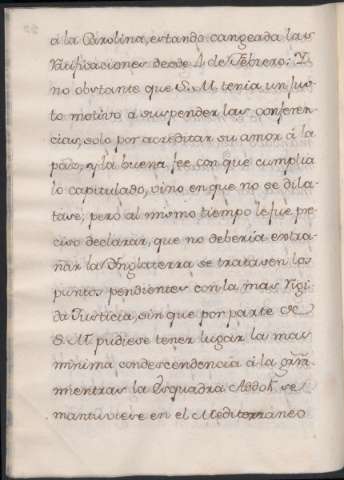 á la Carolina, estando cangeada las
Ratificaciones desde 4 de Febrero: Y
no obstante que S. M. tenia un jus-
to motivo á suspender las conferen-
cias, solo por acreditar su amor á la
paz, y la buena fee con que cumplia
lo capitulado, vino en que no se dila-
tase, pero al mismo tiempo le fue pre-
ciso declarar, que no deberia extra-
ñar la Inglaterra se tratasen los
puntos pendientes con la mas rigi-
da Justicia, sin que por parte de
S. M. pudiese tener lugar la mas
minima condescendencia á la
mientras la Esquadra se
mantuvieve en el Mediterraneo